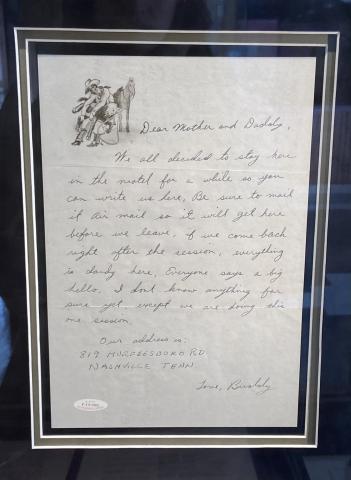 Dear Mother and Daddy,
We all decided to stay here
in the motel for a while so you
can write us here, Be sure to mail
it air mail so it will get here
before we leave, if we come back
right after the session, everything
is dandy here, Everyone says a big
hello, I don't know anything for
sure yet except we are doing this
one session.
Our address is:
819 MURFEESBORO RD.
NASHVILLE TENN
Love, Buddy